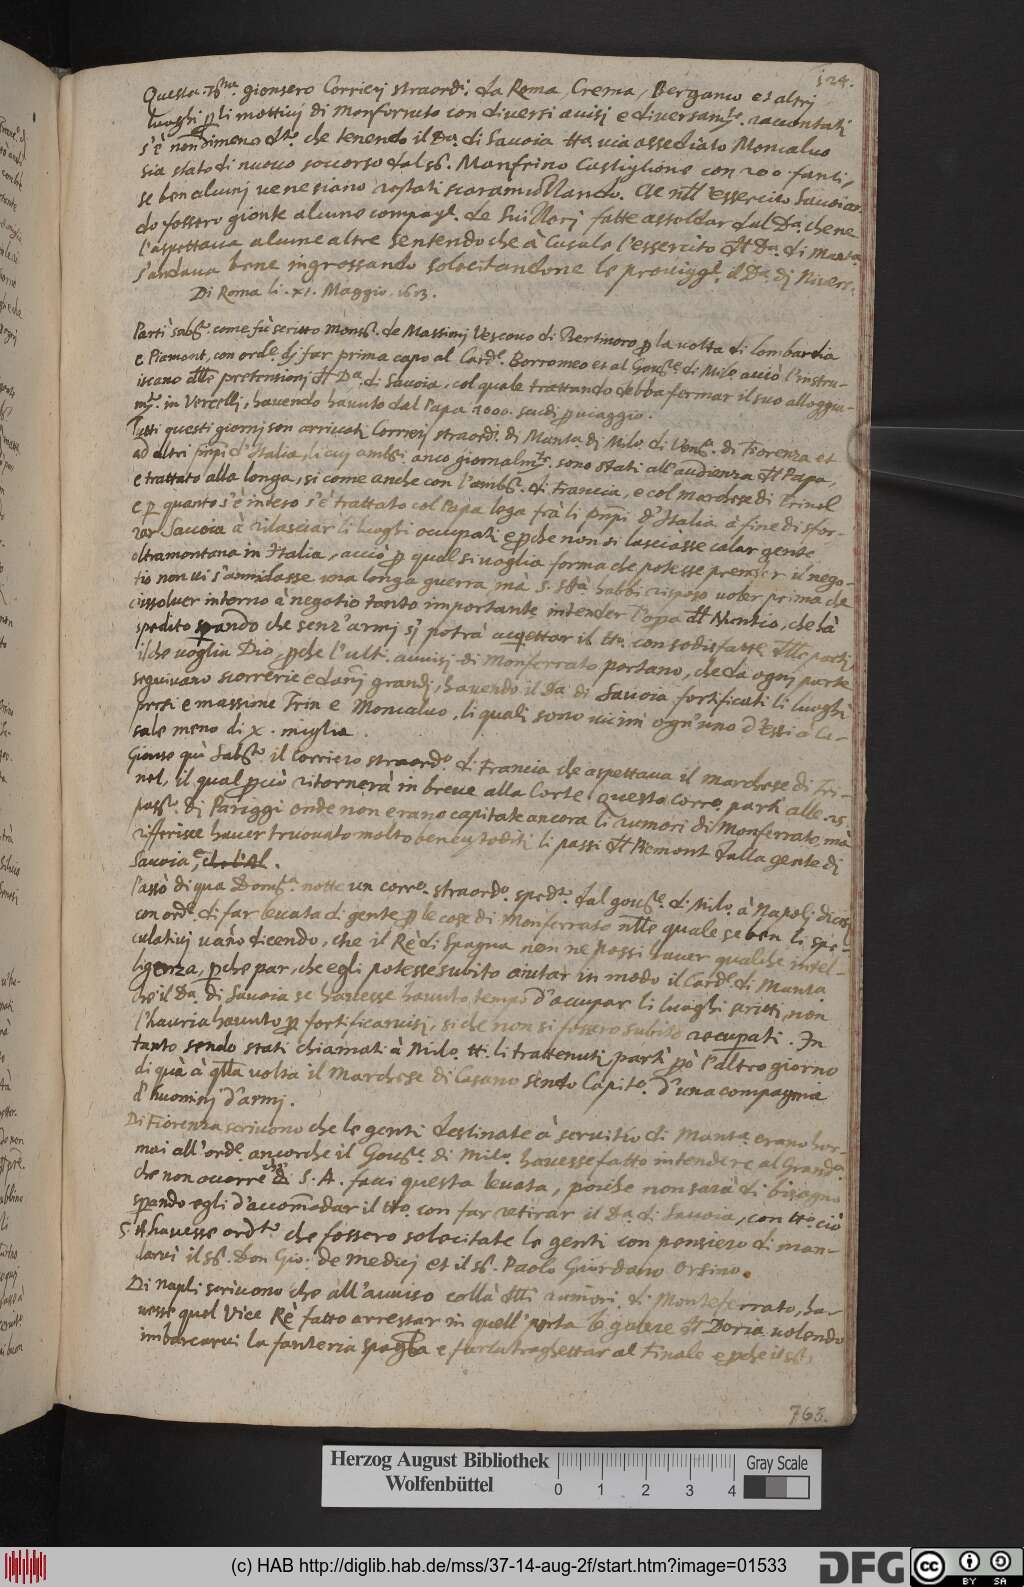 124.
Questa sett.na gionsero Corrieri straord.i da Roma, Crema, Bergamo et altri
luoghi p li mottivi di Monferrato con diversi avisi e diversam.te raccontati
s'è nondimeno d.to che tenendo il Du.a di Savoia tt.a via assediato Moncalvo
sia stato di nuovo soccorso dal s.r Manfrino Castiglione con 200. fanti,
se ben alcuni venesiano restati scaramuzzando. Che nell'essercito Savoiar-
do fossero gionte alcune compag.e de Suizzeri fatte assoldar dal Du.a che ne
l'aspettava alcune altre sentendo che à Casale l'essercito del Du.a di Mant.a
s'andava bene ingrossando solecitandone le provigg.i il Du.a di Nivers.
Di Roma li. xi. Maggio. 1613.
Partì sabb.o come fù scritto Mons.r de Massimi Vescovo di Bertinoro p la volta di Lombardia
e Piamont, con ord.e di far prima capo al Card.l Borromeo et al Gov.re di Mil.o acciò l'instru-
iscano delle pretensioni del Du.a di Savoia, col quale trattando debba fermar il suo alloggia-
m.to in Vercelli, havendo havuto dal Papa 2000. scudi p viaggio.
Tutti questi giorni son arrivati Corrieri straord.i di Mant.a di Mil.o di Ven.a di Fiorenza et
ad altri prnpi d'Italia, li cui amb.ri anco giornalm.te sono stati all'audienza del Papa,
e trattato alla longa, si come anche con l'amb.r di Francia, e col marchese di Trinel
e p quanto s'è inteso s'è trattato col Papa lega frà li prnpi d'Italia à fine di sfor-
zar Savoia à rilasciar li luoghi occupati e pche non si lasciasse calar gente
oltramontana in Italia, acciò p qual si voglia forma che potesse prender il nego-
tio non vi s'annidasse una longa guerra mà S. S.tà habbi risposo voler prima che
rissolver intorno à negotio tanto importante intender l'opa del Nuntio, che hà
spedito sperando che senz'armi si potrà aquettar il tt.o con sodisfatt.e delle parti,
il che voglia Dio, pche l'ult.i avvisi di Monferrato portano, che da ogni parte
seguivano scorrerie e danni grandi, havendo il Du.a di Savoia fortificati li luoghi
presi e massime Trin e Moncalvo, li quali sono vicini ogn'uno d'essi à Ca-
sale meno di x. miglia.
Gionse quì Sabb.o il Corriero straord.o di Francia che aspettava il marchese di Tri-
nel, il qual pciò ritornerà in breve alla Corte. questo Corr.o partì alle 25.
pass.o di Pariggi onde non erano capitate ancora li rumori di Monferrato, mà
rifferisce haver truovato molto ben custoditi li passi del Piemont dalla gente di
Savoia, che l'Al.
Passò di qua Dom.ca notte un corr.o straord.o sped.to dal gov.re di Mil.o à Napoli dicesi
con ord.e di far levata di gente p le cose di Monferrato nelle quale se ben li spe-
culativi vano dicendo, che il Rè di Spagna non ne possi haver qualche intel-
ligenza, pche par, che egli potesse subito aiutar in modo il Card.l di Mant.a
che il Du.a di Savoia se havesse havuto tempo d'occupar li luoghi scritti, non
l'havria havuto p fortificarvisi, siche non si fossero subito recuperati. In
tanto sendo stati chiamati à Mil.o tt.i li trattenuti partì pò l'altro giorno
di quà à quella volta il Marchese di Casano sendo Capit.o d'una compagnia
d'huomini d'armi.
Di Fiorenza scrivono che le genti destinate à servitio di Mant.a erano hor-
mai all'ord.e ancorche il Gov.re di Mil.o havesse fatto intendere al Grand.a
che non occorre che S. A. facci questa levata, poiche non sarà di bisogno
sperando egli d'accomodar il tt.o con far retirar il Du.a di Savoia, con tt.o ciò
S. A. havesse ord.to che fossero solecitate le genti con pensiero di man-
darvi il S.r Don Gio. de Medici et il S.r Paolo Giordano Orsino.
Di Napli scrivono che all'avviso collà delli rumori di Monteferrato, ha-
vesse quel Vice Rè fatto arrestar in quell' porto le galere del Doria volendo
imbarcarvi la fanteria spagla e farla traghettar al Finale e pche il S.r
763.
Herzog August Bibliothek
Wolfenbüttel
0 1 2 3 4
Gray Scale
(c) HAB http://diglib.hab.de/mss/37-14-aug-2f/start.htm?image=01533
DFG
cc BY SA